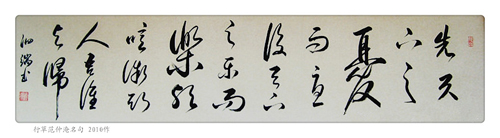 先天
下之
憂
而憂
後天下
之樂而
樂歟
噫微斯
人吾誰
与歸
行草范仲淹名句 2010作